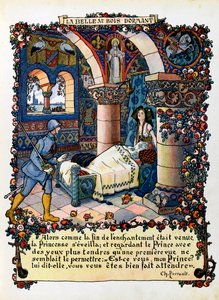 LA BELLE AU BOIS DORMANT
"Alors comme la fin de l'enchantement était venue,
la Princesse s'éveilla; et regardant le Prince avec
des yeux plus tendres qu'une première vue ne
semblait le permettre: Est-ce vous, mon Prince?
lui dit-elle, vous vous êtes bien fait attendre».
Ch. Perrault.